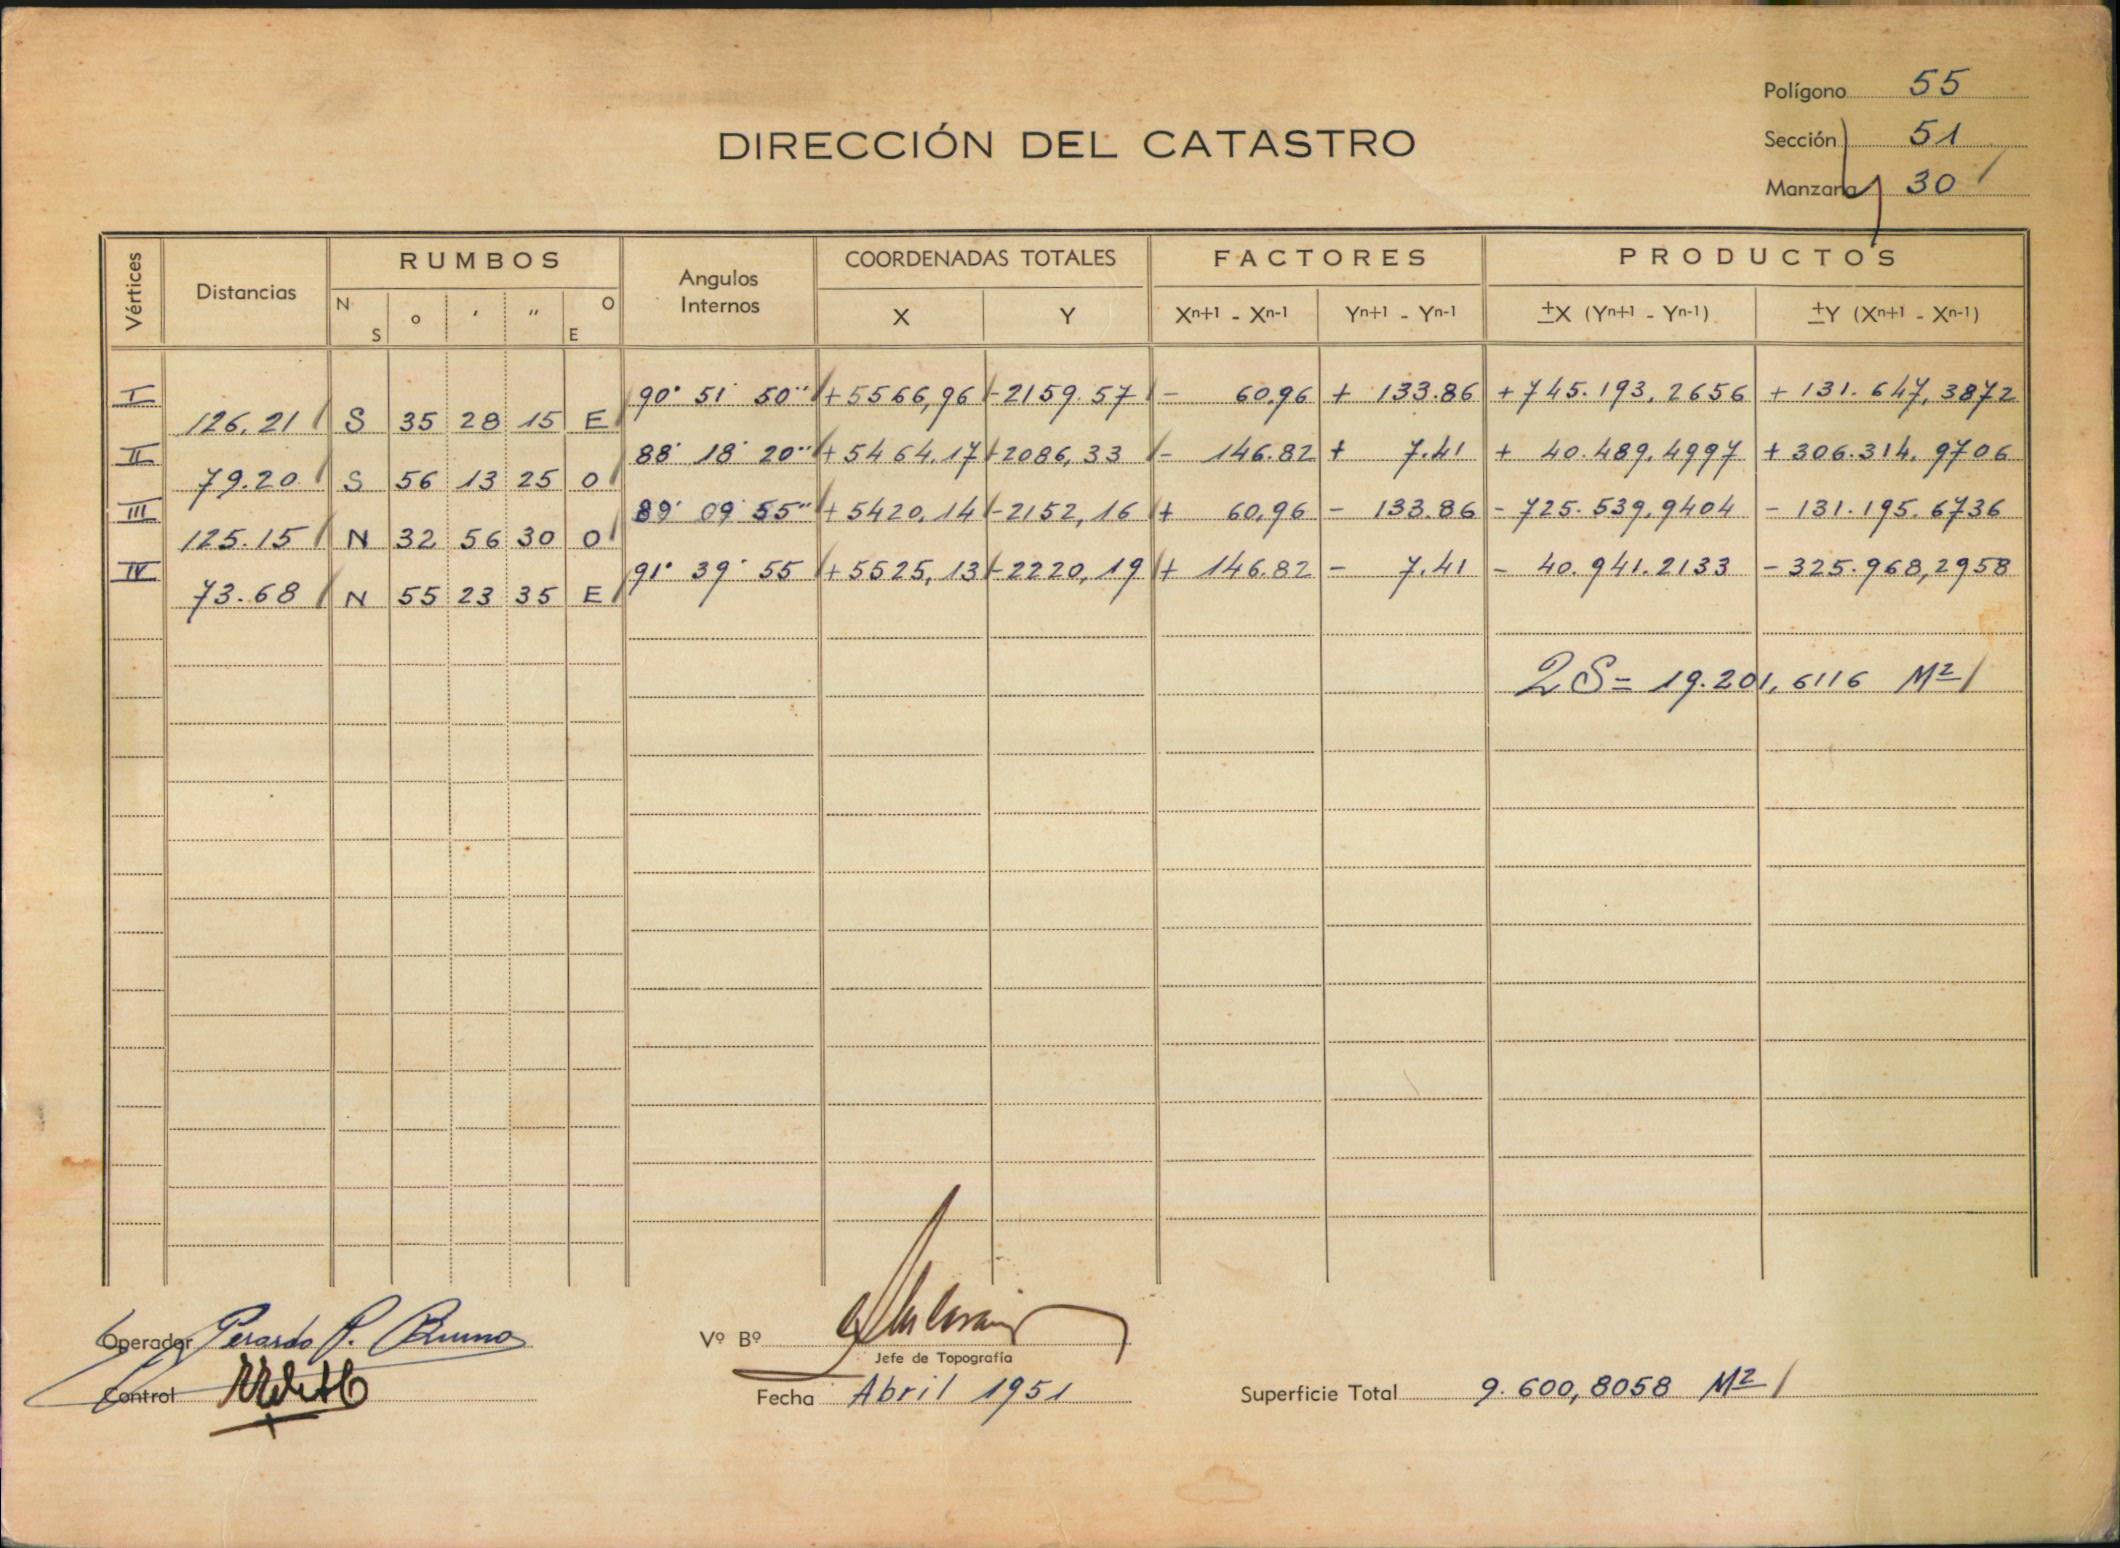 Polígono 55
DIRECCIÓN DEL CATASTRO
Sección 51
Manzana 30
Vértices Distancias RUMBOS Angulos Internos COORDENADAS TOTALES FACTORES PRODUCTOS
N S ° ' " O E X Y Xn+1 - Xn-1 Yn+1 - Yn-1 ±X (Yn+1 - Yn-1) ±Y (Xn+1 - Xn-1)
I 90° 51' 50" +5566,96 -2159.57 - 60,96 + 133.86 +745.193,2656 + 131.647,3872
126.21 S 35 28 15 E
II 88° 18' 20" +5464.17 -2086,33 - 146.82 + 7.41 + 40.489,4997 + 306.314,9706
79.20 S 56 13 25 O
III 89° 09' 55" +5420,14 -2152,16 + 60,96 - 133.86 - 725.539,9404 - 131.195.6736
125.15 N 32 56 30 O
IV 91° 39' 55 +5525,13 -2220,19 + 146.82 - 7.41 - 40.941.2133 - 325.968,2958
73.68 N 55 23 35 E
2S= 19.201,6116 M2
Operador
Vº Bº
Jefe de Topografía
Control
Fecha Abril 1951
Superficie Total 9.600,8058 M2